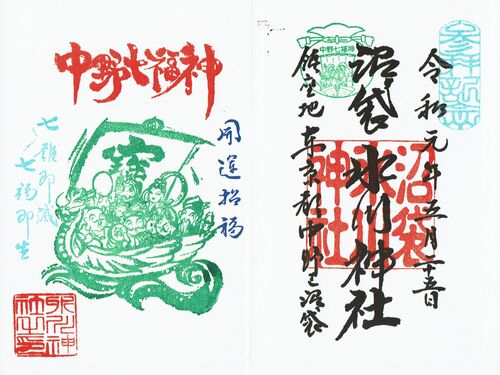 中野七福神
開運招福
七難即滅
七福即生
氷川神
社之印
参拝記念
令和元年五月二十五日
中野七福神
沼袋氷川神社
沼袋
氷川
神社
鎮座地 東京都中野区沼袋